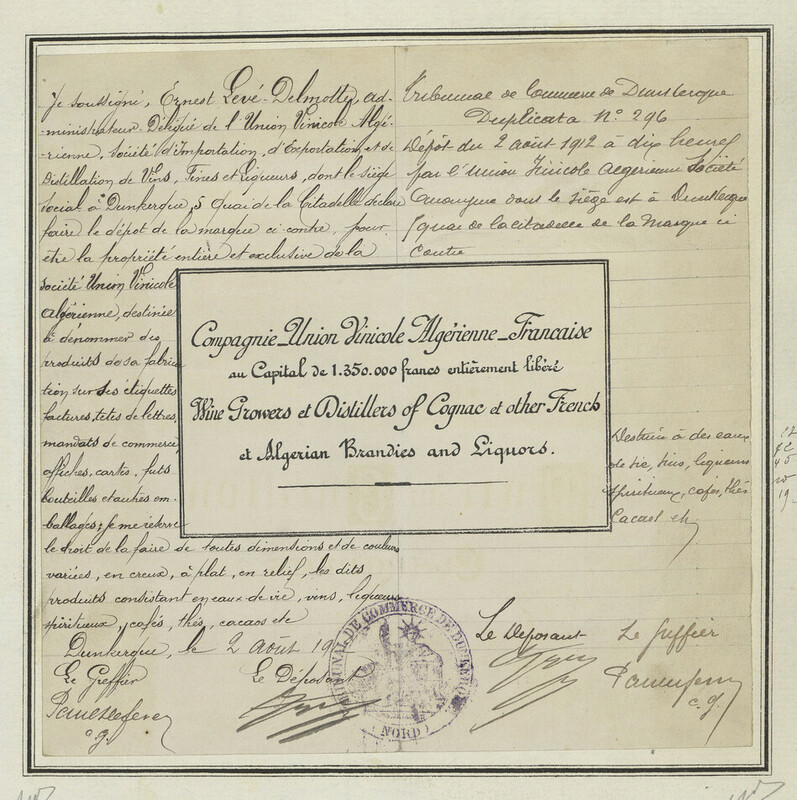 Je soussigné, Ernest Levé-Delmotte, ad-
-ministrateur Délégué de l'Union Vinicole Algé-
-rienne, Société d'Importation, d'Exportation et de
Distillation de Vins, Fines et Liqueurs, dont le siège
social à Dunkerque, 5 Quai de la Citadelle déclare
faire le dépôt de la marque ci contre, pour
être la propriété entière et exclusive de la
Société Union Vinicole
Algérienne, destinée
à dénommer des
produits de sa fabrica
tion sur ses étiquettes
factures, têtes de lettres,
mandats de commerce,
affiches, cartes, futs
bouteilles et autres em-
ballages; je me réserve
le droit de la faire de toutes dimensions et de couleurs
variées, en creux, à plat, en relief, les dits
produits consistant en eaux de vie, vins, liqueurs
spiritueux, cafés, thés, cacaos etc
Dunkerque, le 2 Août 19
Le Greffier Le Déposant
c.g.
Tribunal de Commerce de Dunkerque
Duplicata N° 296
Dépôt du 2 août 1912 à dix heures
par l'Union Vinicole Algérienne Société
anonyme dont le siège est à Dunkerque
5 quai de la citadelle de la Marque ci
contre
Compagnie_Union Vinicole Algérienne_Francaise
au Capital de 1.350.000 francs entièrement libéré
Wine Growers et Distillers of Cognac et other French
et Algerian Brandies and Liquors.
Destinée à des eaux
de vie, vins, liqueurs
spiritueux, cafés, thés
Cacaos etc
Le Déposant Le Greffier
c.g.
TRIBUNAL DE COMMERCE DE DUNKERQUE
(NORD)